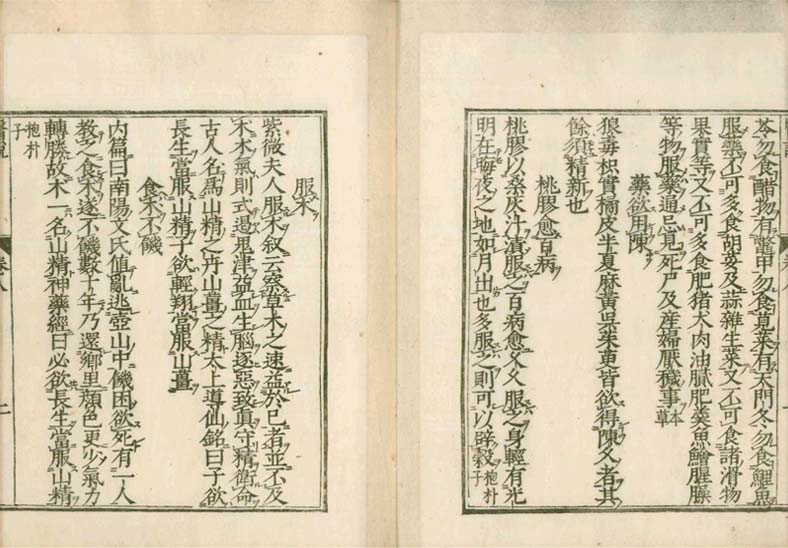 苓勿食醋物有鼈甲勿食莧菜有天門冬勿食鯉魚
服藥不可多食胡荽及蒜雜生菜又不可食諸滑物
果實等又不可多食肥猪犬肉油膩肥羹魚鱠腥臊
等物服藥通忌見死尸及産婦厭穢事本草
藥欲用陳
狼毒枳實橘皮半夏麻黄呉茱萸皆欲得陳久者其
餘須精新也
桃膠愈百病
桃膠以桑灰汁漬服之百病愈久久服之身輕有光
明在晦夜之地如月出也多服之則可以辟穀抱朴子
服朮
紫微夫人服朮叙云察草木之速益於己者並不及
朮木氣則式遏鬼津益血生腦逐惡致眞守精衛命
古人名爲山精之丹山薑之精太上導仙銘曰子欲
長生當服山精子欲輕翔當服山薑
食朮不饑
内篇曰南陽文氏値亂逃壺山中饑困欲死有一人
教之食朮遂不饑數十年乃還鄕里顔色更少氣力
轉勝故朮一名山精神藥經曰必欲長生當服山精
抱朴子
醫説
卷八